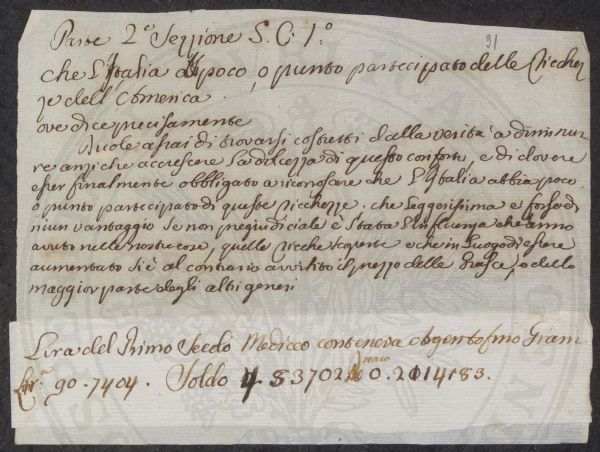 Parte 2.º Sezzione S. C. 1.º
91
che L'Italia à poco, o punto partecipato delle Ricchez
ze dell'America
ove dice precisamente
Duole assai di trovarsi costretti dalla verità a diminui
re anzi che accrescere La dolcezza di questo conforto, e di dovere
esser finalmente obbligato a riconoscere che L'Italia abbia poco
o punto partecipato di queste ricchezze. che leggerissima e forse di
niun vantaggio se non pregiudiciale è stata L'influenza che anno
avuto nelle nostre cose, quelle ricche scoperte e che in Luogo di essere
aumentato si è al contrario avvilito il prezzo delle Grasce, e della
maggior parte degli altri generi
Lira del Primo Secolo Mediceo conteneva Argento fino Grani
90.7404. Soldo 4.53702 naro 0.2014183.